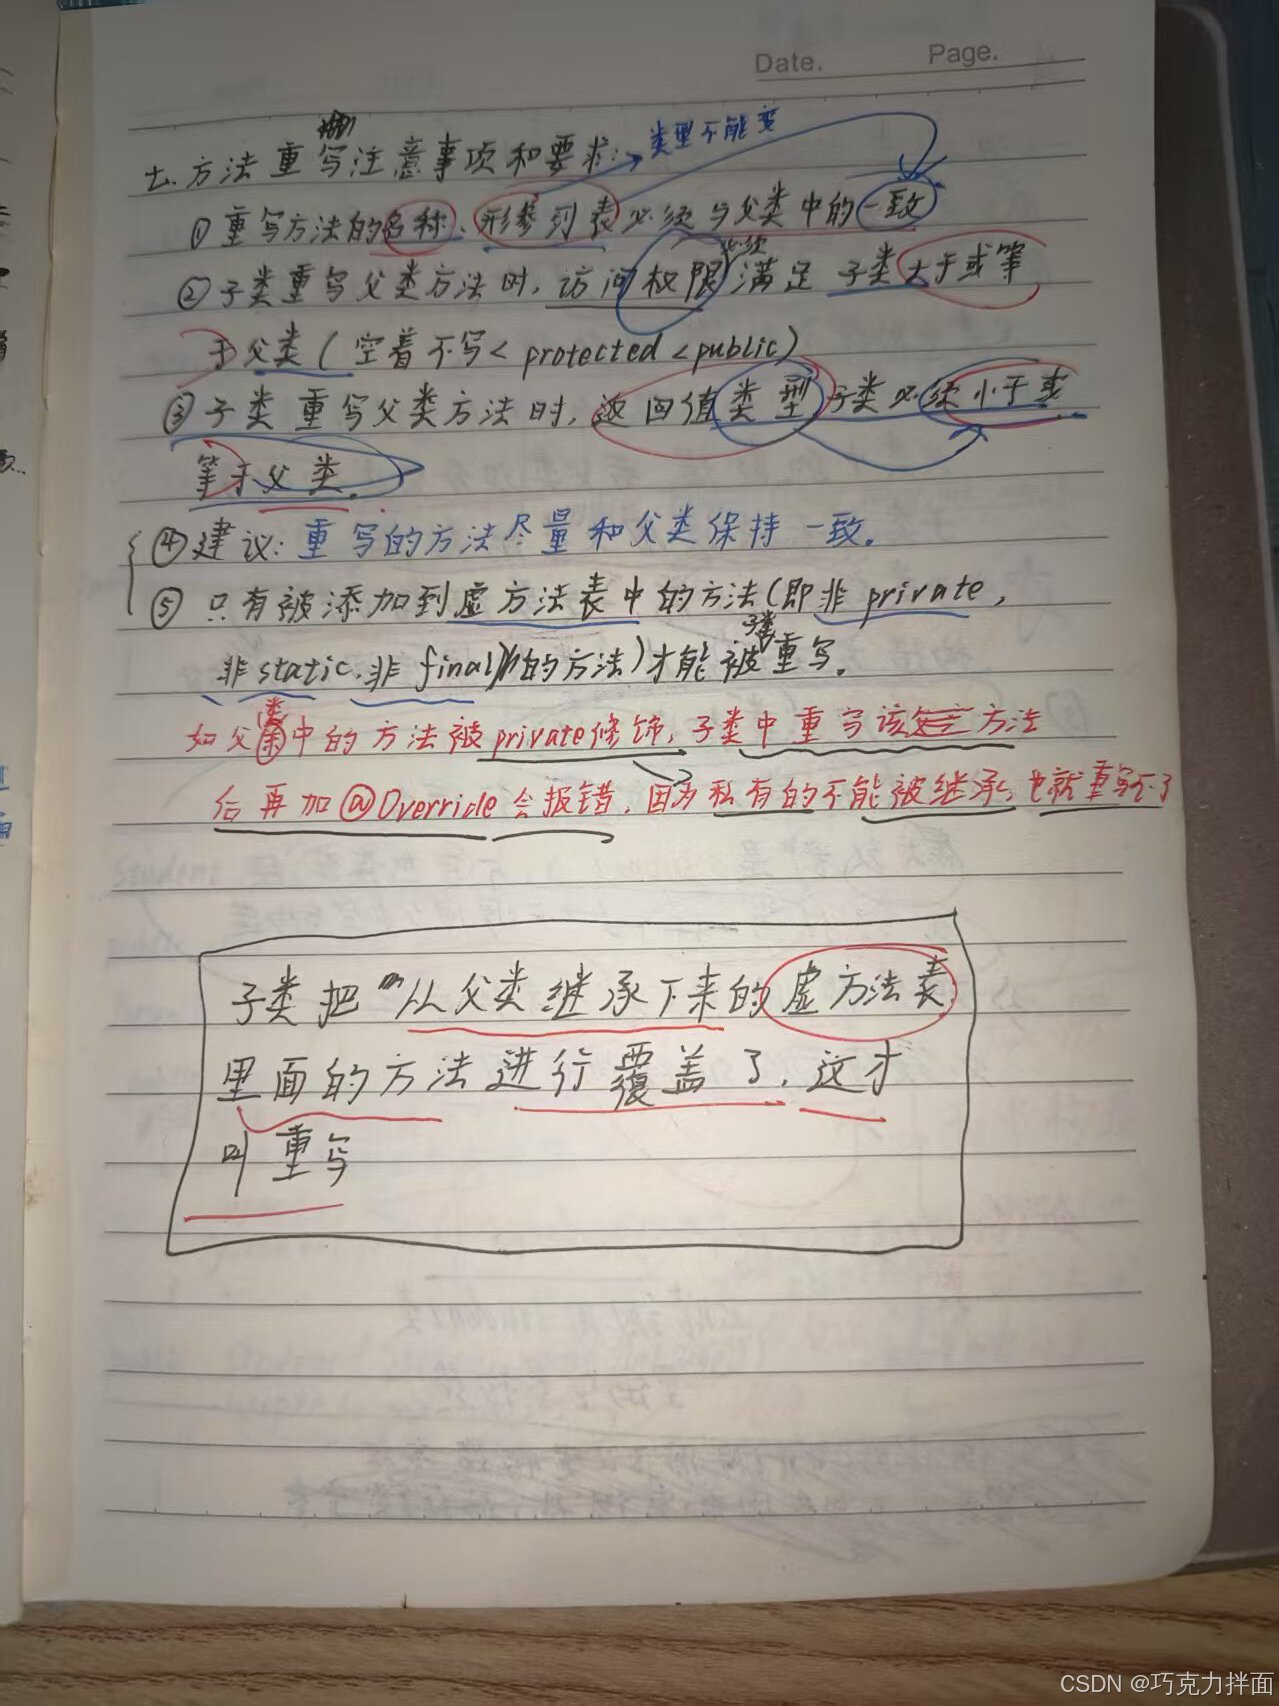 Date. Page.
七.方法重写注意事项和要求: 类型不能变
①重写方法的名称、形参列表必须与父类中的一致
②子类重写父类方法时,访问权限必须满足子类大于或等
于父类(空着不写<protected<public)
③子类重写父类方法时,返回值类型子类必须小于或
等于父类.
④建议:重写的方法尽量和父类保持一致.
⑤只有被添加到虚方法表中的方法(即非private,
非static.非final的方法)才能被子类重写.
如父类中的方法被private修饰,子类中重写该方法
后再加@Override会报错,因为私有的不能被继承,也就重写不了
子类把从父类继承下来的虚方法表
里面的方法进行覆盖了,这才
叫重写
CSDN @巧克力拌面